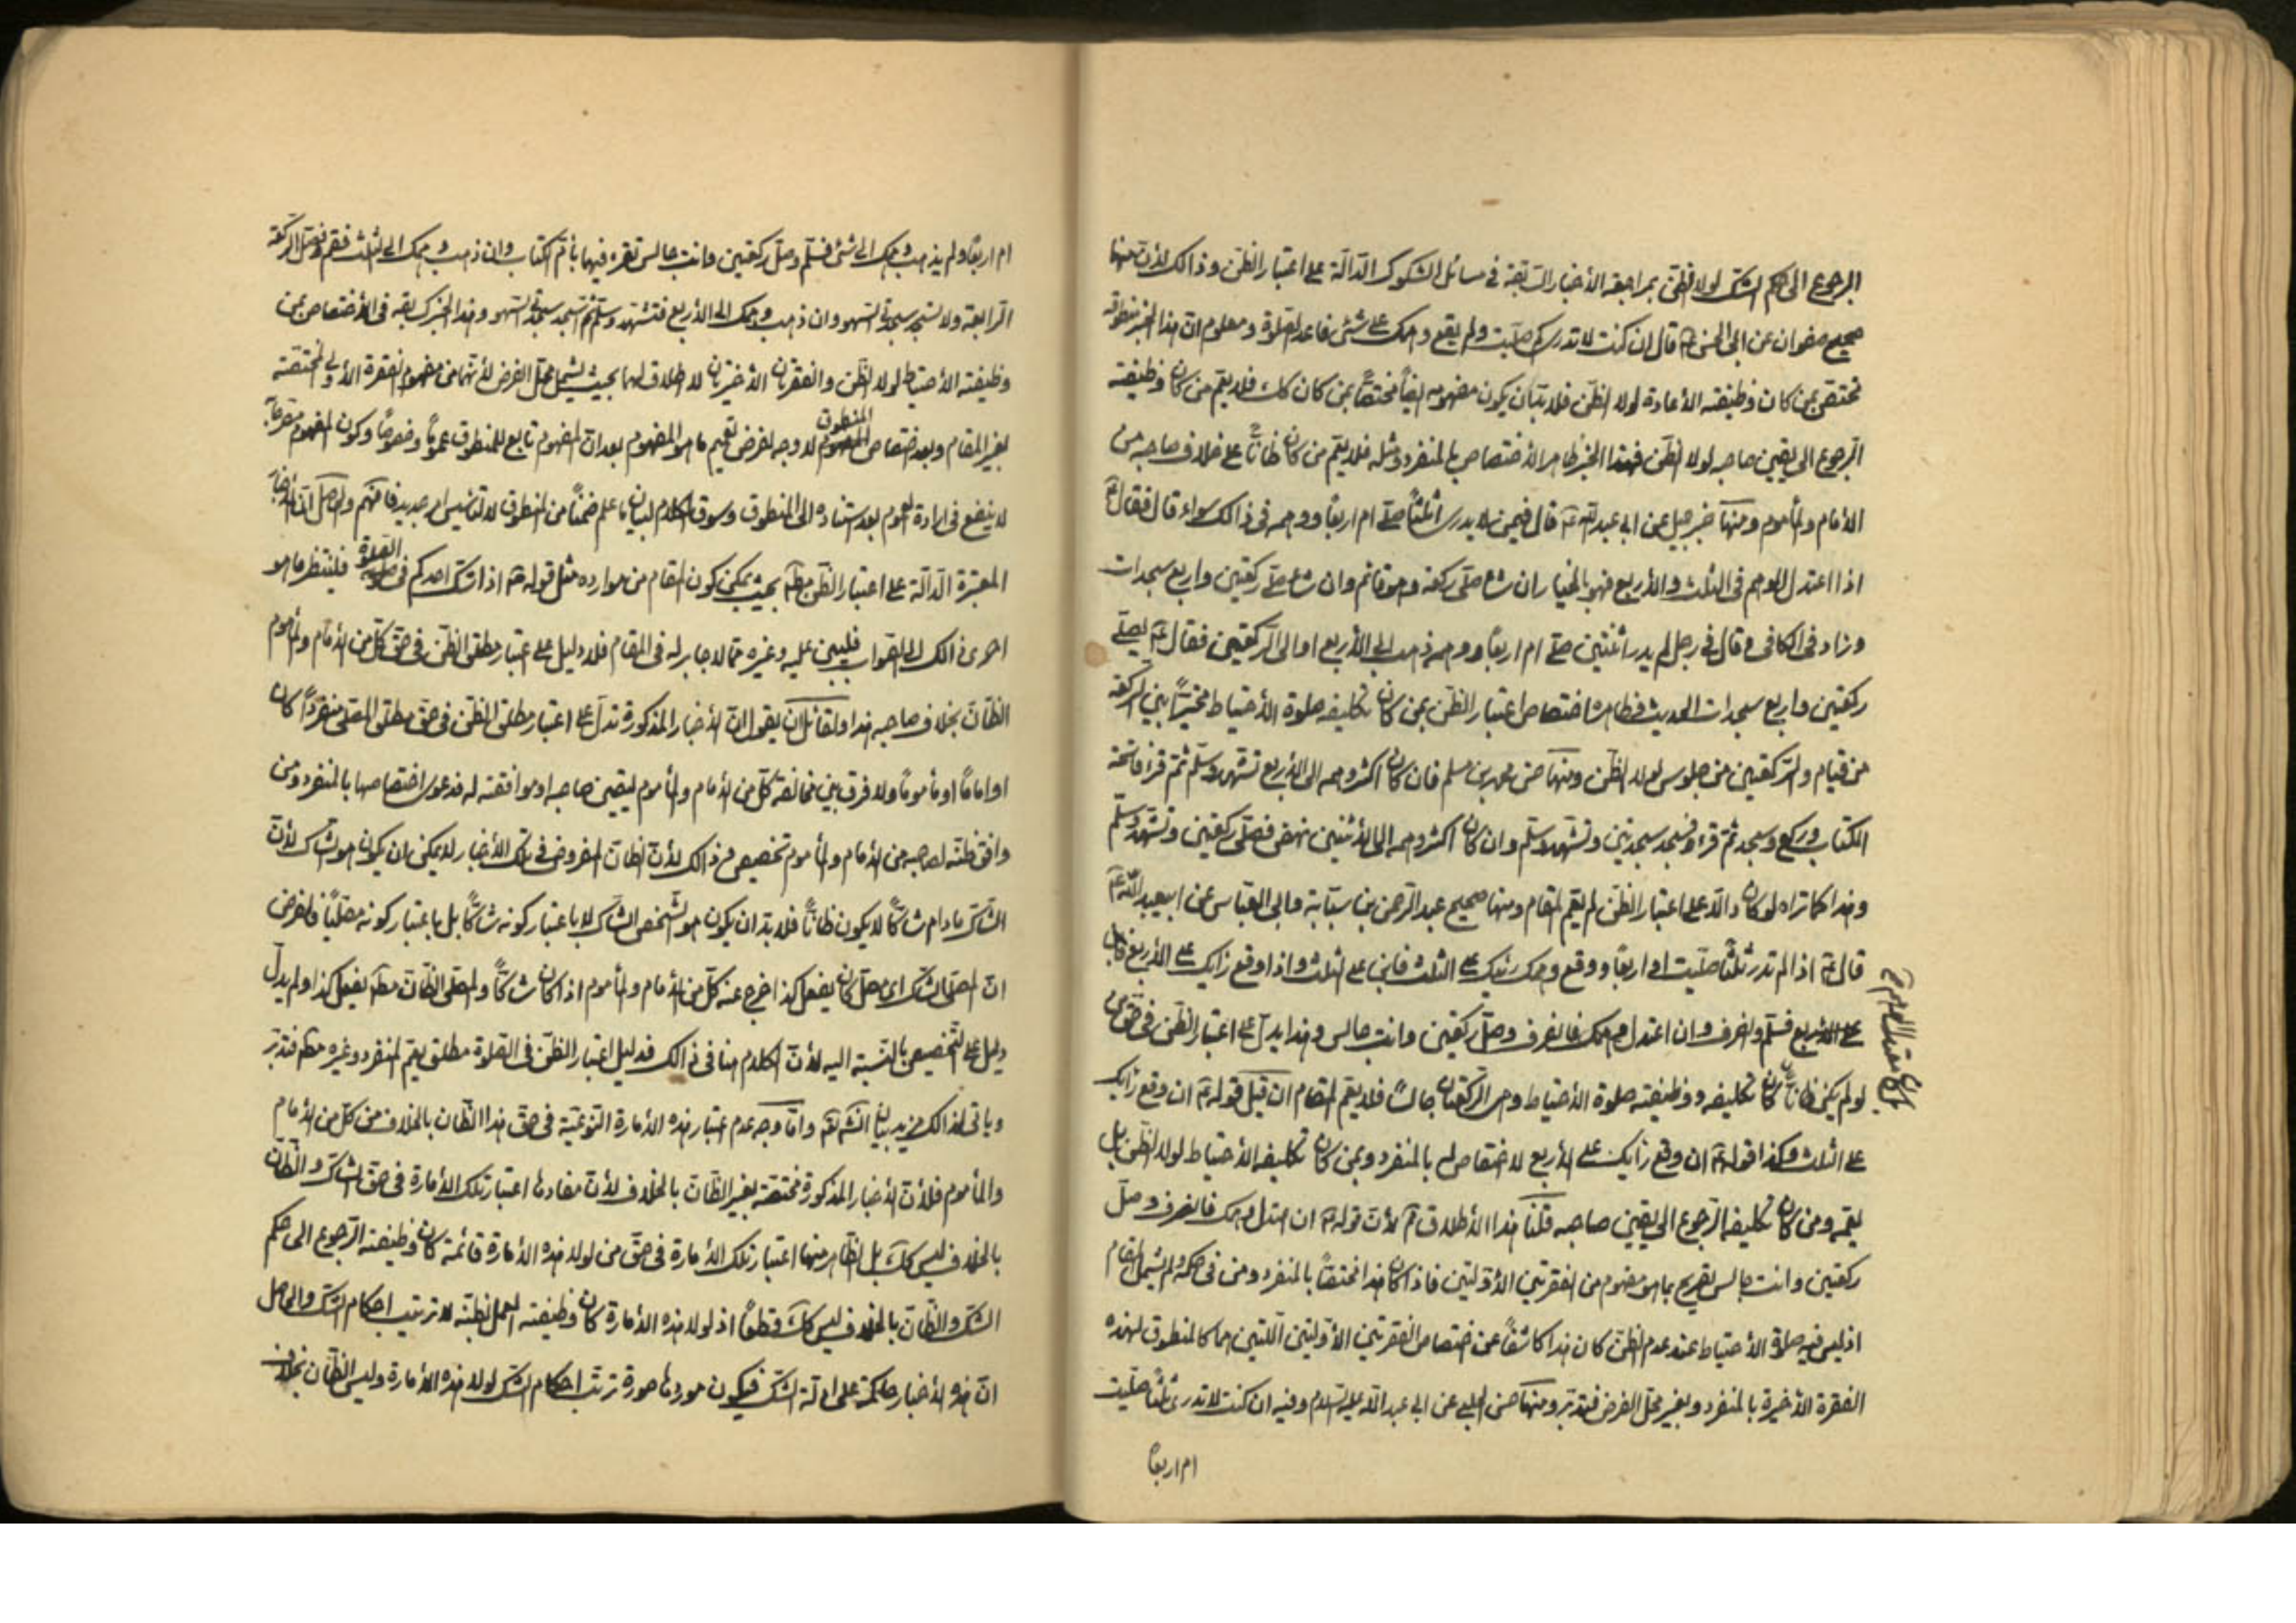 الرجوع الى حكم الشك لولا الظن بمراجعة الأخبار السابقة في مسائل الشكوك الدالة على اعتبار الظن وذالك لأن منها
صحيح صفوان عن ابى الحسن ع قال ان كنت لا تدرى كم صليت ولم يقع وهمك على شئ فاعد الصلوة ومعلوم ان هذا الخبر منطوقه
مختص بمن كان وظيفته الأعادة لولا الظن فلا بد ان يكون مفهومه ايضاً مختصاً بمن كان كك فلا يعم من كان وظيفته
الرجوع الى يقين صاحبه لولا الظن فهذا الخبر ظاهر الأختصاص بالمنفرد ومثله فلا يعم من كان ظاناً على خلاف صاحبه من
الأمام والمأموم ومنها خبر جميل عن ابى عبد الله ع قال فيمن لا يدرى اثلثاً صلى ام اربعاً ووهمه في ذالك سواء قال فقال ع
اذا اعتدل الوهم في الثلث والأربع فهو بالخيار ان شاء صلى ركعة وهو قائم وان شاء صلى ركعتين واربع سجدات
وزاد في الكافى وقال في رجل لم يدر اثنتين صلى ام اربعاً ووهمه يذهب الى الأربع او الى الركعتين فقال ع يصلى
ركعتين واربع سجدات الحديث فظاهره اختصاص اعتبار الظن بمن كان تكليفه صلوة الأحتياط مخيراً بين الركعة
من قيام والركعتين من جلوس لولا الظن ومنها حسن محمد بن مسلم فان كان اكثر وهمه الى الأربع تشهد وسلم ثم قرء فاتحة
الكتاب وركع وسجد ثم قرء وسجد سجدتين وتشهد وسلم وان كان اكثر وهمه الى الأثنتين نهض فصلى ركعتين وتشهد وسلم
وهذا كما تراه لو كان دالا على اعتبار الظن لم يعم المقام ومنها صحيح عبد الرحمن بن سيابة وابى العباس عن ابيعبد الله ع
قال ع اذا لم تدر ثلثاً صليت او اربعاً ووقع وهمك رئيك على الثلث فابن على الثلث واذا وقع رايك على الأربع فابن
على الأربع فسلم وانصرف وان اعتدل وهمك فانصرف وصل ركعتين وانت جالس وهذا يدل على اعتبار الظن في حق من
لو لم يكن ظاناً كان تكليفه ووظيفته صلوة الأحتياط وهى الركعتان جالساً فلا يعم المقام ان قيل قوله ع ان وقع رايك
على الثلث وكذا قوله ع ان وقع رايك على الأربع لا اختصاص له بالمنفرد وبمن كان تكليفه الأحتياط لولا الظن بل
يعمه ومن كان تكليفه الرجوع الى يقين صاحبه قلنا هذا الأطلاق م لأن قوله ع ان اعتدل وهمك فانصرف وصل
ركعتين وانت جالس تصريح بما هو مفهوم من الفقرتين الأوليتين فاذا كان هذا مختصاً بالمنفرد ومن في حكمه ولم يشمل المقام
اذ ليس فيه صلوة الأحتياط عند عدم الظن كان هذا كاشفاً عن اختصاص الفقرتين الأوليتين اللتين هما كالمنطوق لهذه
الفقرة الأخيرة بالمنفرد وبغير محل الفرض فتدبر ومنها حسن الحلبى عن ابى عبد الله عليه السلام وفيه ان كنت لا تدرى ثلثاً صليت
ام اربعاً
ام اربعاً ولم يذهب وهمك الى شئ فسلم وصل ركعتين وانت جالس تقرء فيهما بأم الكتاب وان ذهب وهمك الى الثلث فقم فصل الركعة
الرابعة ولا تسجد سجدتى السهو وان ذهب وهمك الى الأربع فتشهد وسلم ثم تسجد سجدتى السهو وهذا الخبر كسابقه في الأختصاص بمن
وظيفته الأحتياط لولا الظن والفقرتان الأخيرتان لا اطلاق لهما بحيث يشمل محل الفرض لأنهما من مفهوم الفقرة الأولى المختصة
بغير المقام وبعد اختصاص المنطوق لا وجه لفرض تعميم ما هو المفهوم بعد ان المفهوم تابع للمنطوق عموماً وخصوصاً وكون المفهوم مصرحاً به
لا ينفع في ارادة العموم بعد استناده الى المنطوق وسوق الكلام لبيان ما علم ضمناً من المنطوق لا تأسيس امر جديد فافهم والحاصل ان الأخبار
المعتبرة الدالة على اعتبار الظن مط بحيث يمكن كون المقام من موارده مثل قوله ع اذا شك احدكم في الصلوة فلينتظر ما هو
احرى ذالك الى الصواب فليبن عليه وغيره مما لا جابر له في المقام فلا دليل على اعتبار مطلق الظن في حق كل من الأمام والمأموم
الظان بخلاف صاحبه هذا ولقائل ان يقول ان الأخبار المذكورة تدل على اعتبار مطلق الظن في حق مطلق المصلى منفرداً كان
او اماماً او مأموماً ولا فرق بين مخالفة كل من الأمام والمأموم ليقين صاحبه او موافقته له فدعوى اختصاصها بالمنفرد ومن
وافق ظنه لصاحبه من الأمام والمأموم تخصيص من ذالك لأن الظان المفروض في تلك الأخبار لا يمكن ان يكون هو الشاك لأن
الشاك ما دام شاكاً لا يكون ظاناً فلا بد ان يكون هو الشخص الشاك لا باعتبار كونه شاكاً بل باعتبار كونه مصلياً والفرض
ان المصلى الشاك اى مصل كان يفعل كذا خرج عنه كل من الأمام والمأموم اذا كان شاكاً والمصلى الظان مط يفعل كذا ولم يدل
دليل على التخصيص بالنسبة اليه لأن الكلام هنا في ذالك فدليل اعتبار الظن في الصلوة مطلق يعم المنفرد وغيره محكم فتدبر
وياتى لذالك مزيد بيان انش تع واما وجه عدم اعتبار هذه الأمارة النوعية في حق هذا الظان بالخلاف من كل من الأمام
والمأموم فلأن الأخبار المذكورة مختصة بغير الظان بالخلاف لأن مفادها اعتبار تلك الأمارة في حق الشاك والظان
بالخلاف ليس كك بل الظاهر منها اعتبار تلك الأمارة في حق من لولا هذه الأمارة قائمة كان وظيفته الرجوع الى حكم
الشك والظان بالخلاف ليس كك قطعاً اذ لولا هذه الأمارة كان وظيفته العمل بظنه لا ترتيب احكام الشك والحاصل
ان هذه الأخبار حاكمة على ادلة الشك فيكون موردها صورة ترتب احكام الشك لولا هذه الأمارة وليس الظان بخلاف